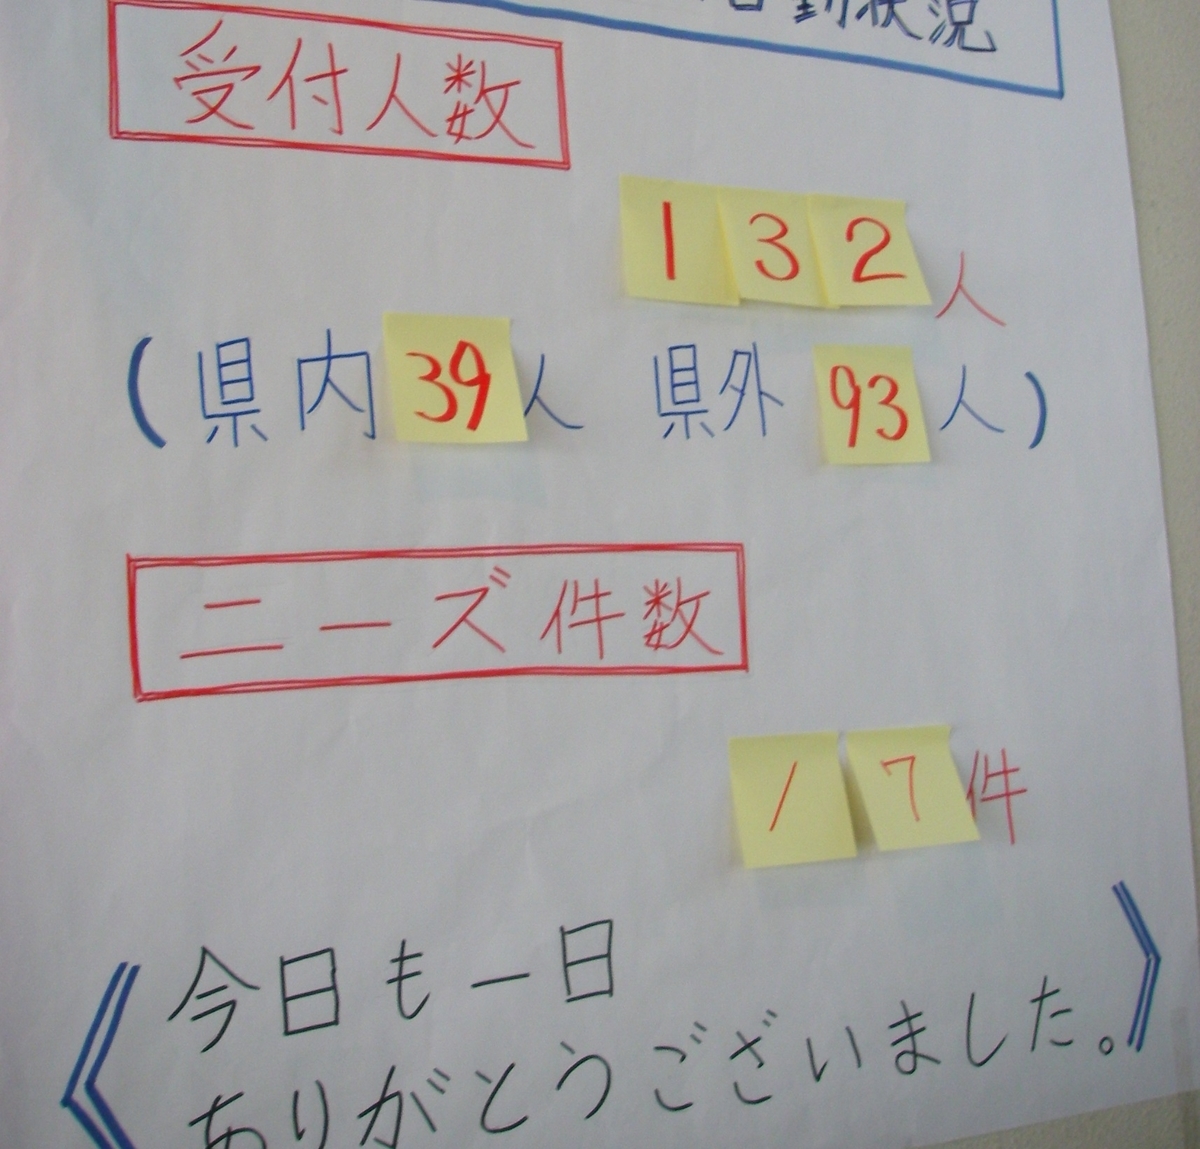 動状況
受付人数
132人
(県内39人 県外93人)
ニーズ件数
17件
《今日も一日
ありがとうございました。》